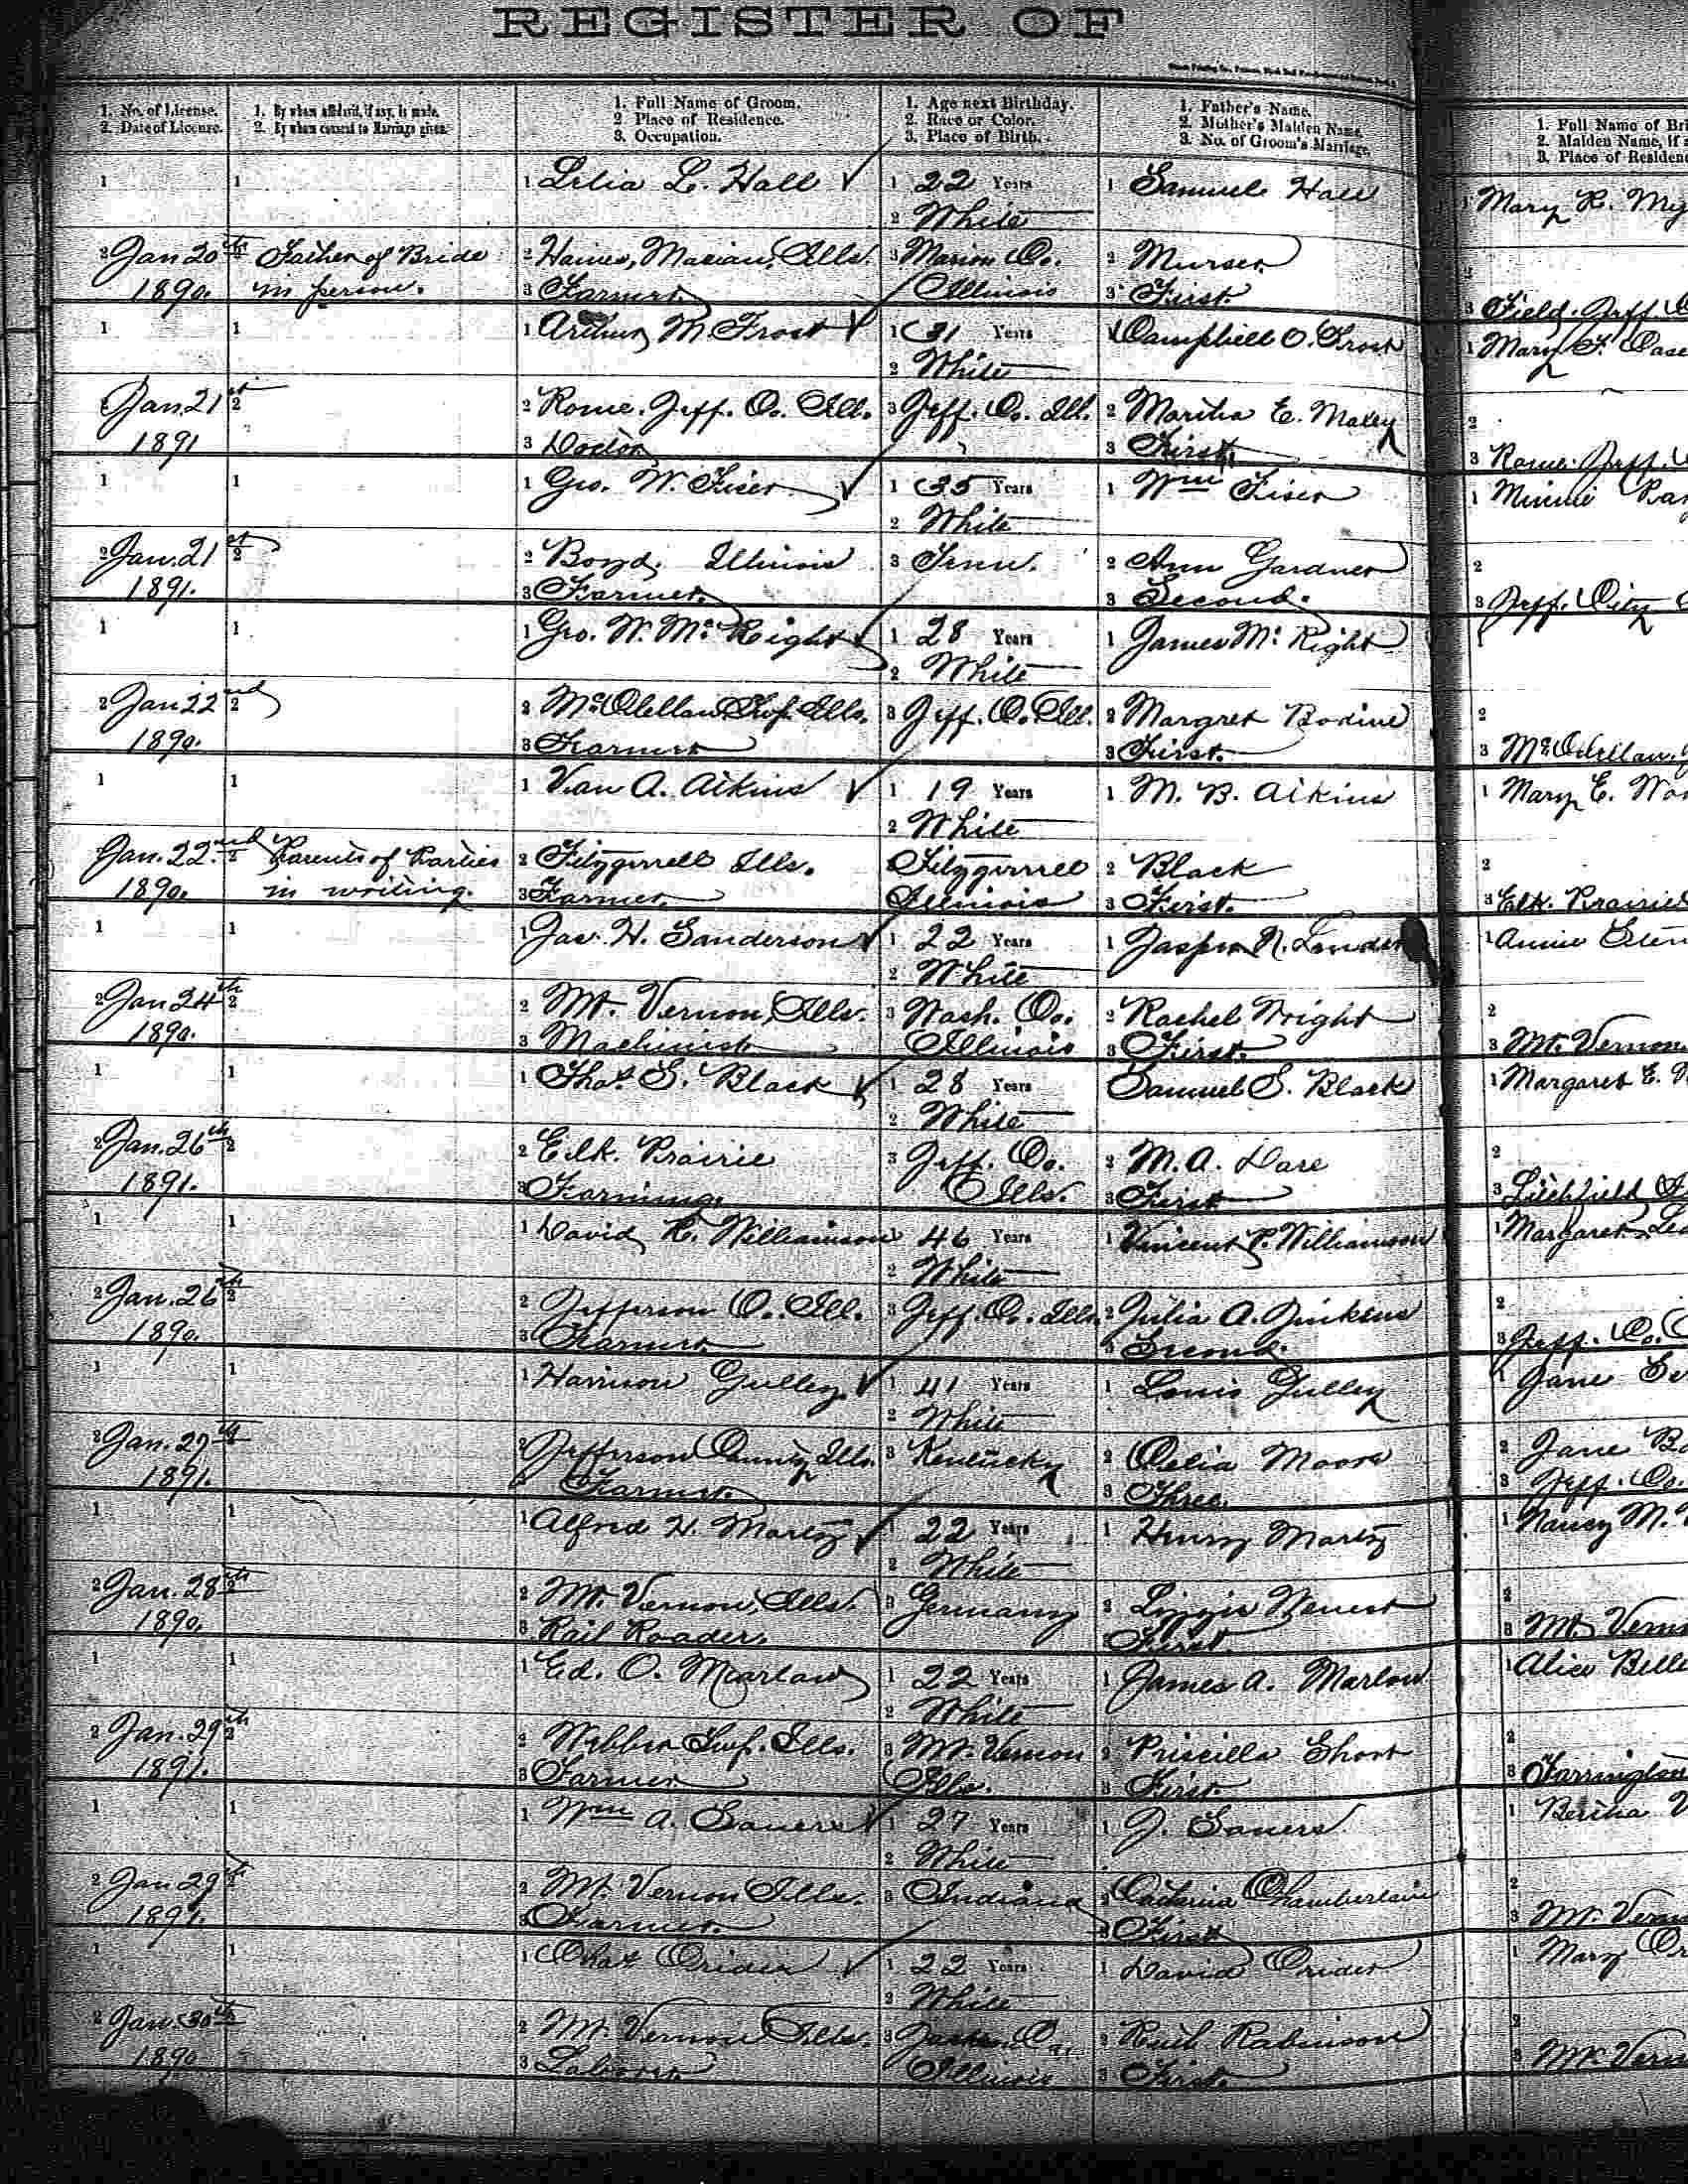 REGISTER OF
1. No. of License.
2. Date of License.
1. By whom affidavit, if any, is made.
2. By whom consent to Marriage given.
1. Full Name of Groom.
2 Place of Residence.
3. Occupation.
1. Age next Birthday.
2. Race or Color.
3. Place of Birth.
1. Father's Name.
2. Mother's Maiden Name.
3. No. of Groom's Marriage.
1. Full Name of Bri
2. Maiden Name, if
3. Place of Residenc
1 1 1 Lelia L. Hall 1 22 Years 1 Samuel Hall 1 Mary R. My
2 White
2 Jan 20th Father of Bride 2 Haines, Marian, Ills. 3 Marion Co. 2 Murser
1890. in person. 3 Farmer Illinois 3 First. 3 Field. Jeff.
1 1 1 Arthur M. Frost 1 31 Years 1 Campbell O. Frost 1 Mary F. Case
2 White
Jan. 21st 2 2 Rome. Jeff. Co. Ill. 3 Jeff. Co. Ill. 2 Martha E. Maxey 2
1891 3 Doctor 3 First. 3 Rome. Jeff.
1 1 1 Geo. W. Fiser 1 35 Years 1 Wm Fiser 1 Minnie
2 White
2 Jan. 21st 2 2 Boyd, Illinois 3 Tenn. 2 Ann Gardner 2
1891. 3 Farmer. 3 Second. 3 Jeff. City
1 1 1 Geo. W. McRight 1 28 Years 1 James McRight 1
2 White
2 Jan 22nd 2 2 McClellan Twp. Ills. 3 Jeff. Co. Ill. 2 Margret Bodine 2
1890. 3 Farmer 3 First. 3 McClellan.
1 1 1 Van A. Aikins 1 19 Years 1 M. B. Aikins 1 Mary E.
2 White
Jan. 22nd 2 Parents of Parties 2 Fitzgerrell Ills. Fitzgerrell 2 Black 2
1890. in writing. 3 Farmer Illinois 3 First. 3 Elk. Prairie
1 1 1 Jas. H. Sanderson 1 22 Years 1 Jasper N. 1 Annie
2 White
2 Jan 24th 2 2 Mt. Vernon, Ills. 3 Wash. Co. 2 Rachel Wright 2
1890. 3 Machinist Illinois 3 First. 3 Mt. Vernon
1 1 1 Thos. S. Black 1 28 Years Samuel S. Black 1 Margaret E.
2 White
2 Jan. 26th 2 2 Elk. Prairie 3 Jeff. Co. 2 M. A. Dare 2
1891. 3 Farming. Ills. 3 First 3 Litchfield
1 1 1 David R. Williamson 46 Years 1 Vincent P. Williamson 1 Margaret
2 White
2 Jan. 26th 2 2 Jefferson Co. Ill. 3 Jeff. Co. Ills. 2 Julia A. Jinkens 2
1890. 3 Farmer 3 Second. 3 Jeff. Co.
1 1 1 Harrison Gulley 1 41 Years 1 Louis Gulley 1 Jane
2 White
2 Jan. 27th 2 2 Jefferson County Ills. 3 Kentucky 2 Celia Moore 2 Jane
1891. Farmer. 3 Three. 3 Jeff. Co.
1 1 1 Alfred H. Martz 1 22 Years 1 Henry Martz 1 Nancy M.
2 White
2 Jan. 28th 2 2 Mt. Vernon, Ills. 3 Germany 2 Lizzie 2
1890. 3 Rail Roader. First 3 Mt Vern
1 1 1 Ed. O. Marlow 1 22 Years 1 James A. Marlow 1 Alice Bell
2 White
2 Jan. 29th 2 2 Webber Twp. Ills. 3 Mt. Vernon 2 Priscilla Short 2
1891. 3 Farmer Ills. 3 First. 3 Farrington
1 1 1 Wm A. Sauers 1 27 Years 1 J. Sauers 1 Bertha
2 White
2 Jan 29th 2 2 Mt. Vernon Ills. 3 Indiana 2 Chamberlain 2
1891. 3 Farmer. 3 First 3 Mt. Vern
1 1 1 Chas Crider 1 22 Years 1 David Crider 1 Mary
2 White
2 Jan. 30th 2 2 Mt. Vernon Ills. 3 2 Ruth Robinson 2
1890 3 Laborer Illinois 3 First. 3 Mt. Vern